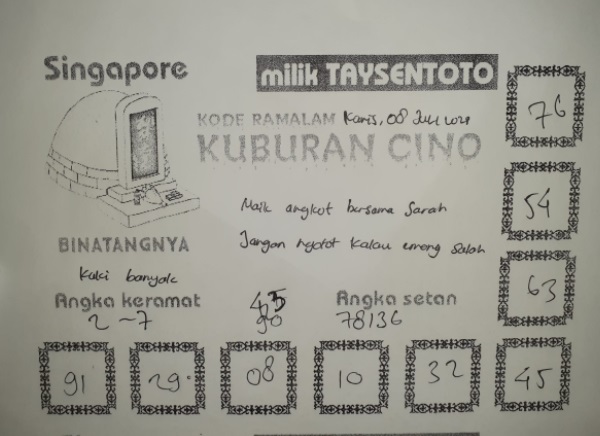 Singapore
milik TAYSENTOTO
76
KODE RAMALAM Kamis, 08 Juli 2021
KUBURAN CINO
Naik angkot bersama Sarah
54
BINATANGNYA
Jangan ngotot kalau emang Salah
Kaki banyak
63
Angka keramat
Angka setan
2 - 7
90
78136
91
29
08
10
32
45